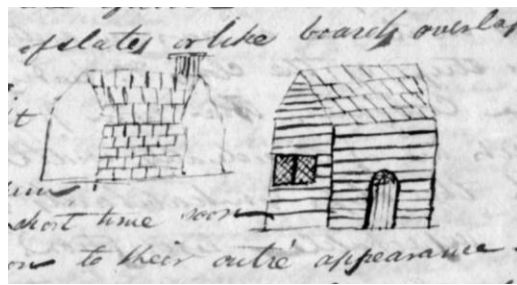 of slates or like boards overlap
it
short time soon
on to their outré appearance